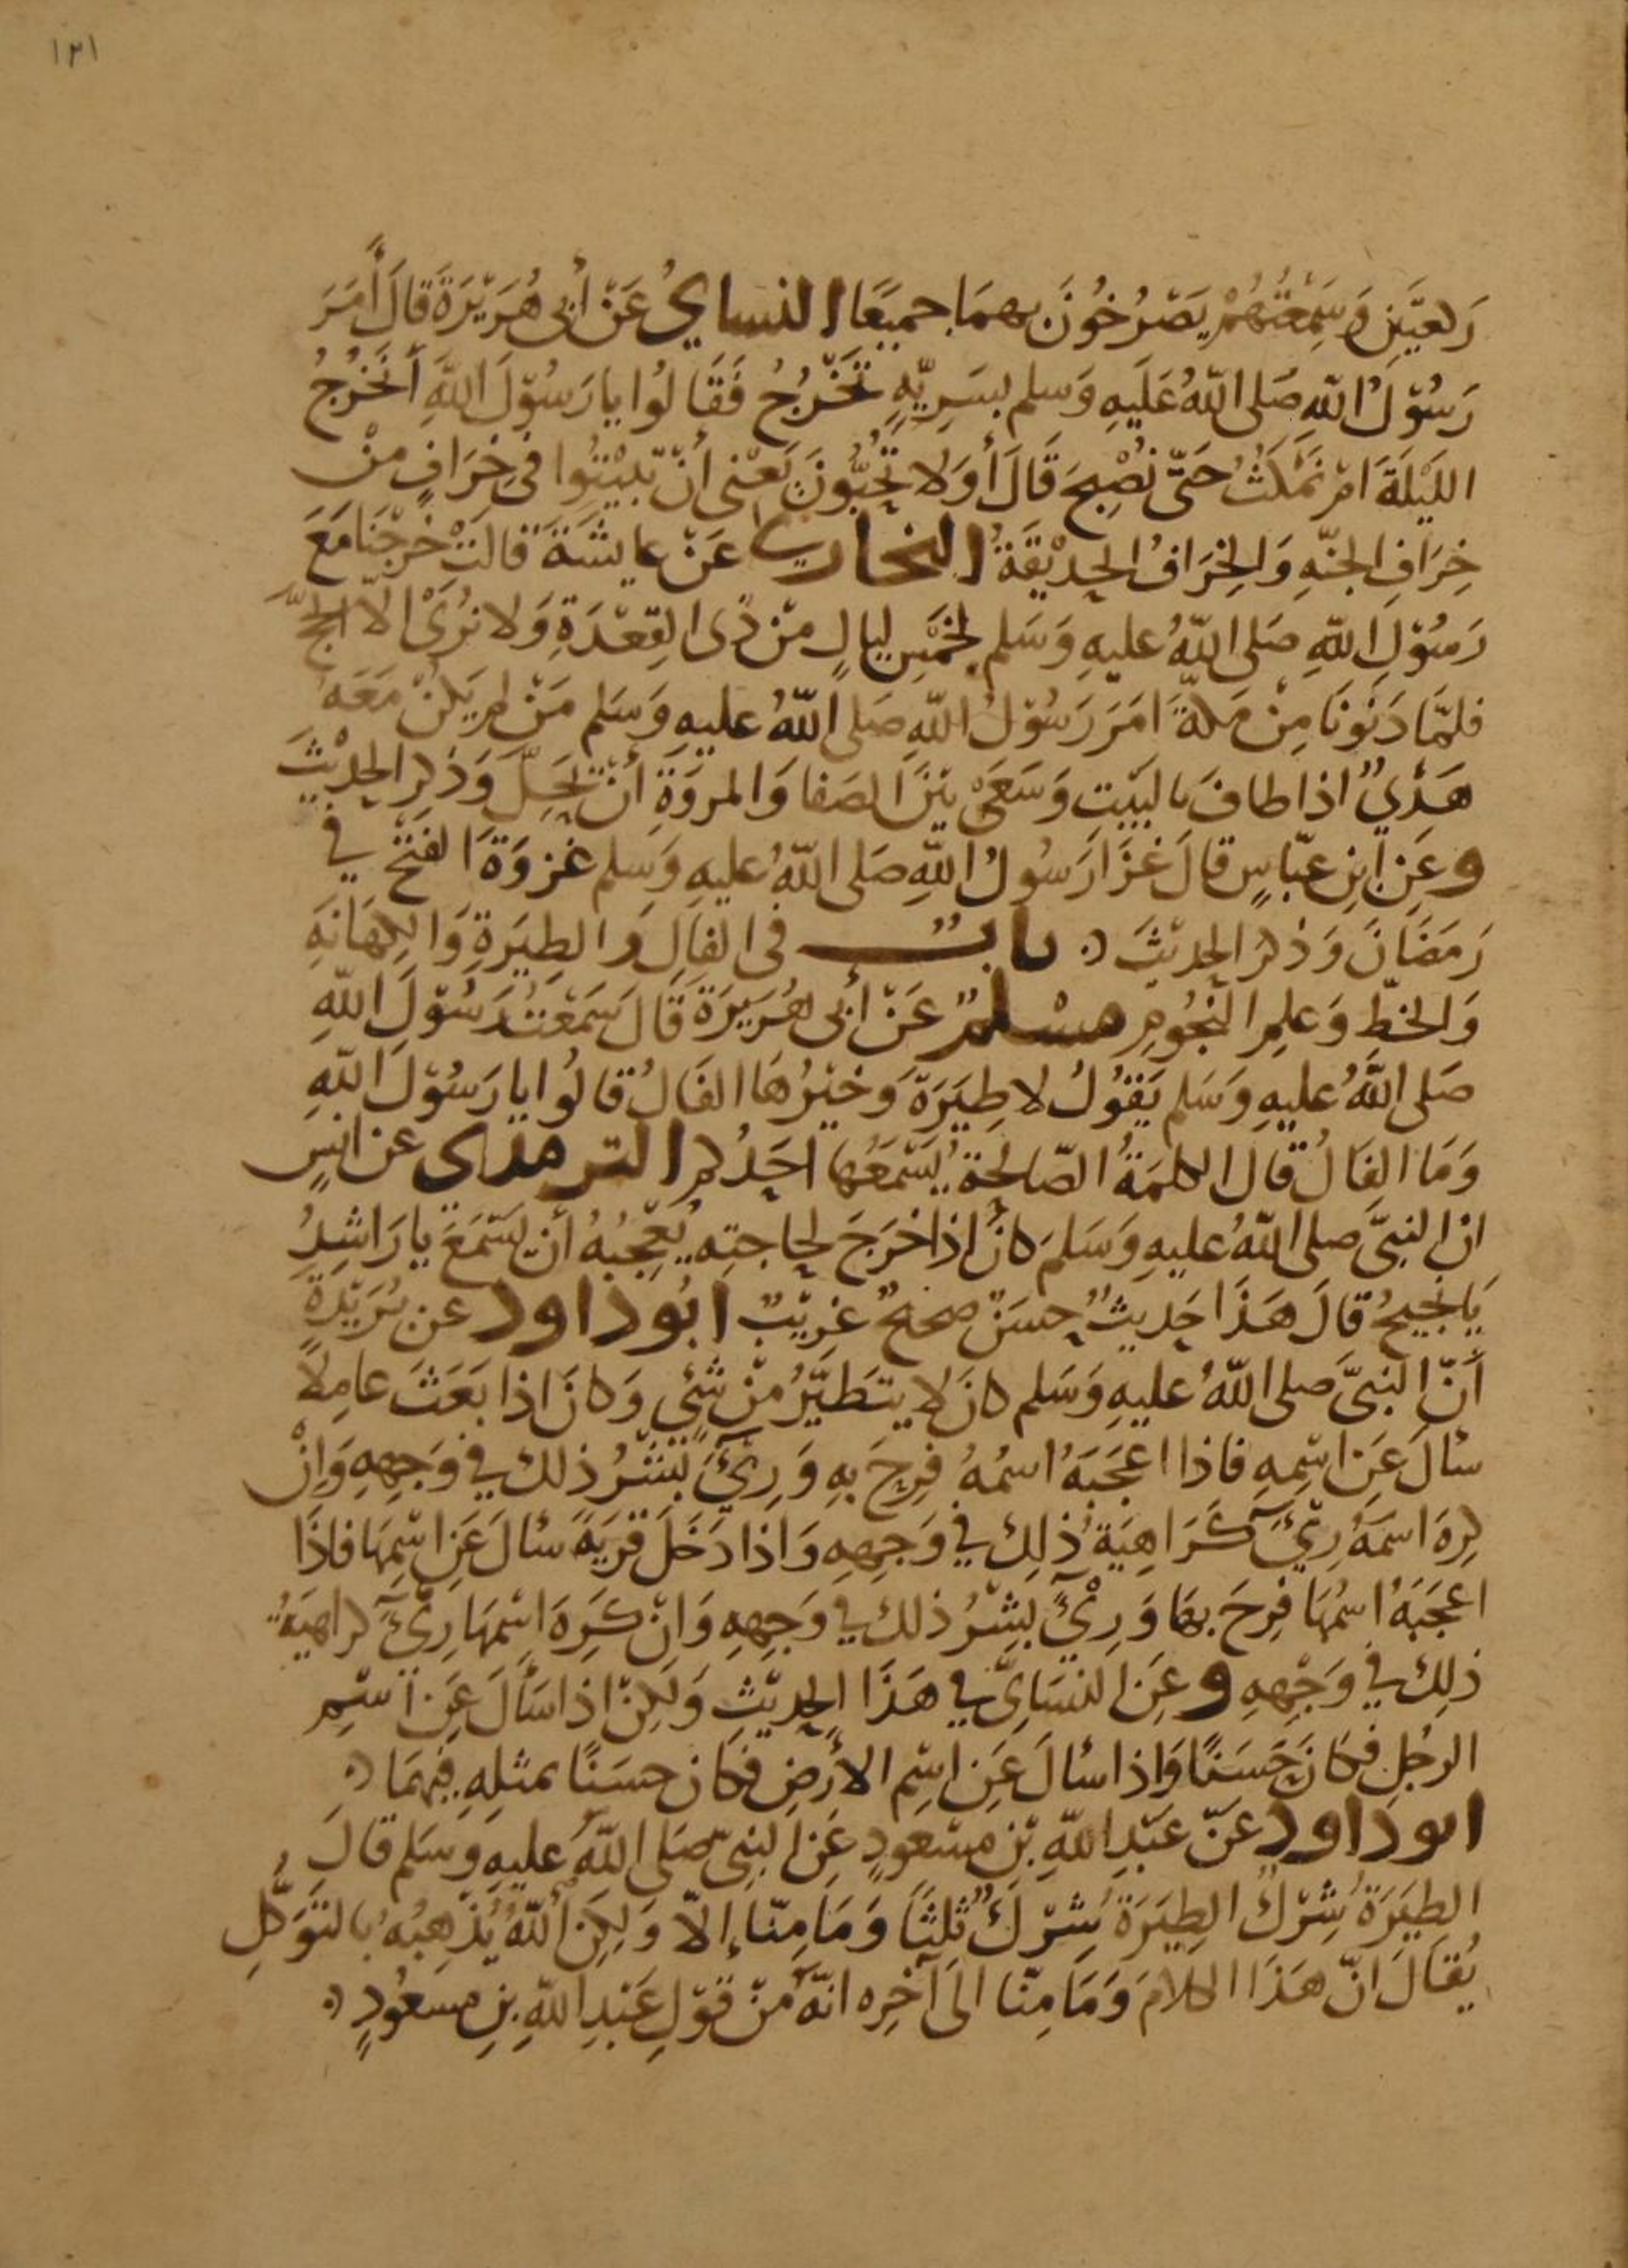 ١٢١
رَكعتَينِ وَسَمِعْتُهُمْ يَصْرُخُونَ بهمَا جميعًا النسايُ عَنْ أبى هُرَيْرَةَ قَالَ أَمَرَ
رَسُوْلُ اللهِ صَلى اللهُ عَلَيهِ وَسلم بسَرِيّهٍ تَخْرُجُ فَقَالُوا يا رَسُوْلَ اللهِ أَنَخْرُجُ
اللَيْلَةَ امْ نَمْكُثُ حَتَّى نُصْبِحَ قَالَ أوَلا تُحِبُّونَ يَعْنى أنْ تَبيْتُوا فى خِرَافٍ منْ
خِرَافِ الجنّهِ وَالخِرَافُ الحدِيْقَةُ البخارى عَنْ عايشَةَ قالَتْ خَرجْنَا مَعَ
رَسُوْلِ اللهِ صَلى اللهُ عليهِ وَسَلم لخمْسِ ليالٍ منْ ذى القِعْدَةِ وَلا نُرَىْ الّا الحجَّ
فلمّا دَنَونَا مِنْ مَكةَ امَرَ رَسُوْلُ اللهِ صَلى اللهُ عليهِ وَسَلم مَنْ لم يَكنْ مَعَهُ
هَدْيٌ اذا طافَ بالبَيْتِ وَسَعَىْ بَيْنَ الصَفا وَالمروَةِ أنْ يَحِلَّ وَذكر الحدِيْثَ
وعَنِ ابْنِ عبّاسٍ قالَ غَزَا رَسُولُ اللهِ صَلى اللهُ عليهِ وَسلم غزوَةَ الفتْحْ فِي
رَمَضَانَ وَذكرَ الحديْثَ باب فى الفَالِ وَالطِيَرةِ وَالكِهَانَهِ
وَالخطِّ وَعلمِ النجُومِ مسْلمٌ عَنْ أبى هُرَيرَةَ قَالَ سَمعْتُ رَسُوْلَ اللهِ
صَلى اللهُ عليهِ وَسَلم يَقوُلُ لا طِيَرَةَ وَخيْرُهَا الفَالُ قالُوا يا رَسُوْلَ اللهِ
وَمَا الفَالُ قال الكلمَةُ الصّالحةُ يَسْمَعُها احَدُكم الترمذى عن انسٍ
انّ النبىَّ صلى اللهُ عليهِ وَسَلمَ كانَ اذا خرَجَ لحاجتِه يُعْجِبُهُ أنْ يسْمَعَ يا رَاشِدُ
يَا نجيحُ قالَ هَذَا حَديثٌ حسَنٌ صحيحٌ غرِيْبٌ ابُو داود عن بُرَيْدَةَ
أَنّ النبىَّ صلى اللهُ عليهِ وَسَلم كانَ لا يتَطيَّرُ منْ شَئٍ وَكانَ اذا بَعَثَ عامِلاً
سألَ عَنِ اسْمِهِ فاذا اعجَبَهُ اسمُهُ فرِحَ بهِ وَرِئَ بشْرُ ذلك في وَجهِهِ وَانْ
كرِهَ اسمَهُ رِئَ كَرَاهِيَةُ ذلِكَ في وَجهِهِ وَاذا دَخَلَ قَريَةً سألَ عَنِ اسْمِهَا فاذَا
اعجَبَهُ اسمُهَا فرِحَ بها وَرِئَ بِشْرُ ذلكَ في وَجهِهِ وَانْ كَرِهَ اسْمهَا رِئَ كراهيَةُ
ذلِكَ في وَجْهِهِ وعَنِ النسَائِيّ في هَذَا الحديْثِ وَلَكِنْ اذا سَألَ عَنِ اسْمِ
الرجُلِ فكانَ حَسَنًا وَاذا سألَ عَنِ اسْمِ الأرْضِ فكان حسَنًا بمثلِهِ فيهمَا
ابو داود عنْ عَبْدِ اللهِ بْنِ مسْعودٍ عَنِ النبىّ صَلى اللهُ عليهِ وَسَلم قالَ
الطِيَرَةُ شِرْكٌ الطِيَرَةُ شِرْكٌ ثلثًا وَمَا مِنّا إلّا وَلكِنّ اللهَ يُذْهِبُهُ بالتوَكّلِ
يُقَالَ انّ هَذَا الكلامَ وَمَا مِنّا الىَ آخِرِه انّهُ منْ قوْلِ عَبْدِ اللهِ بنِ مسعُودٍ